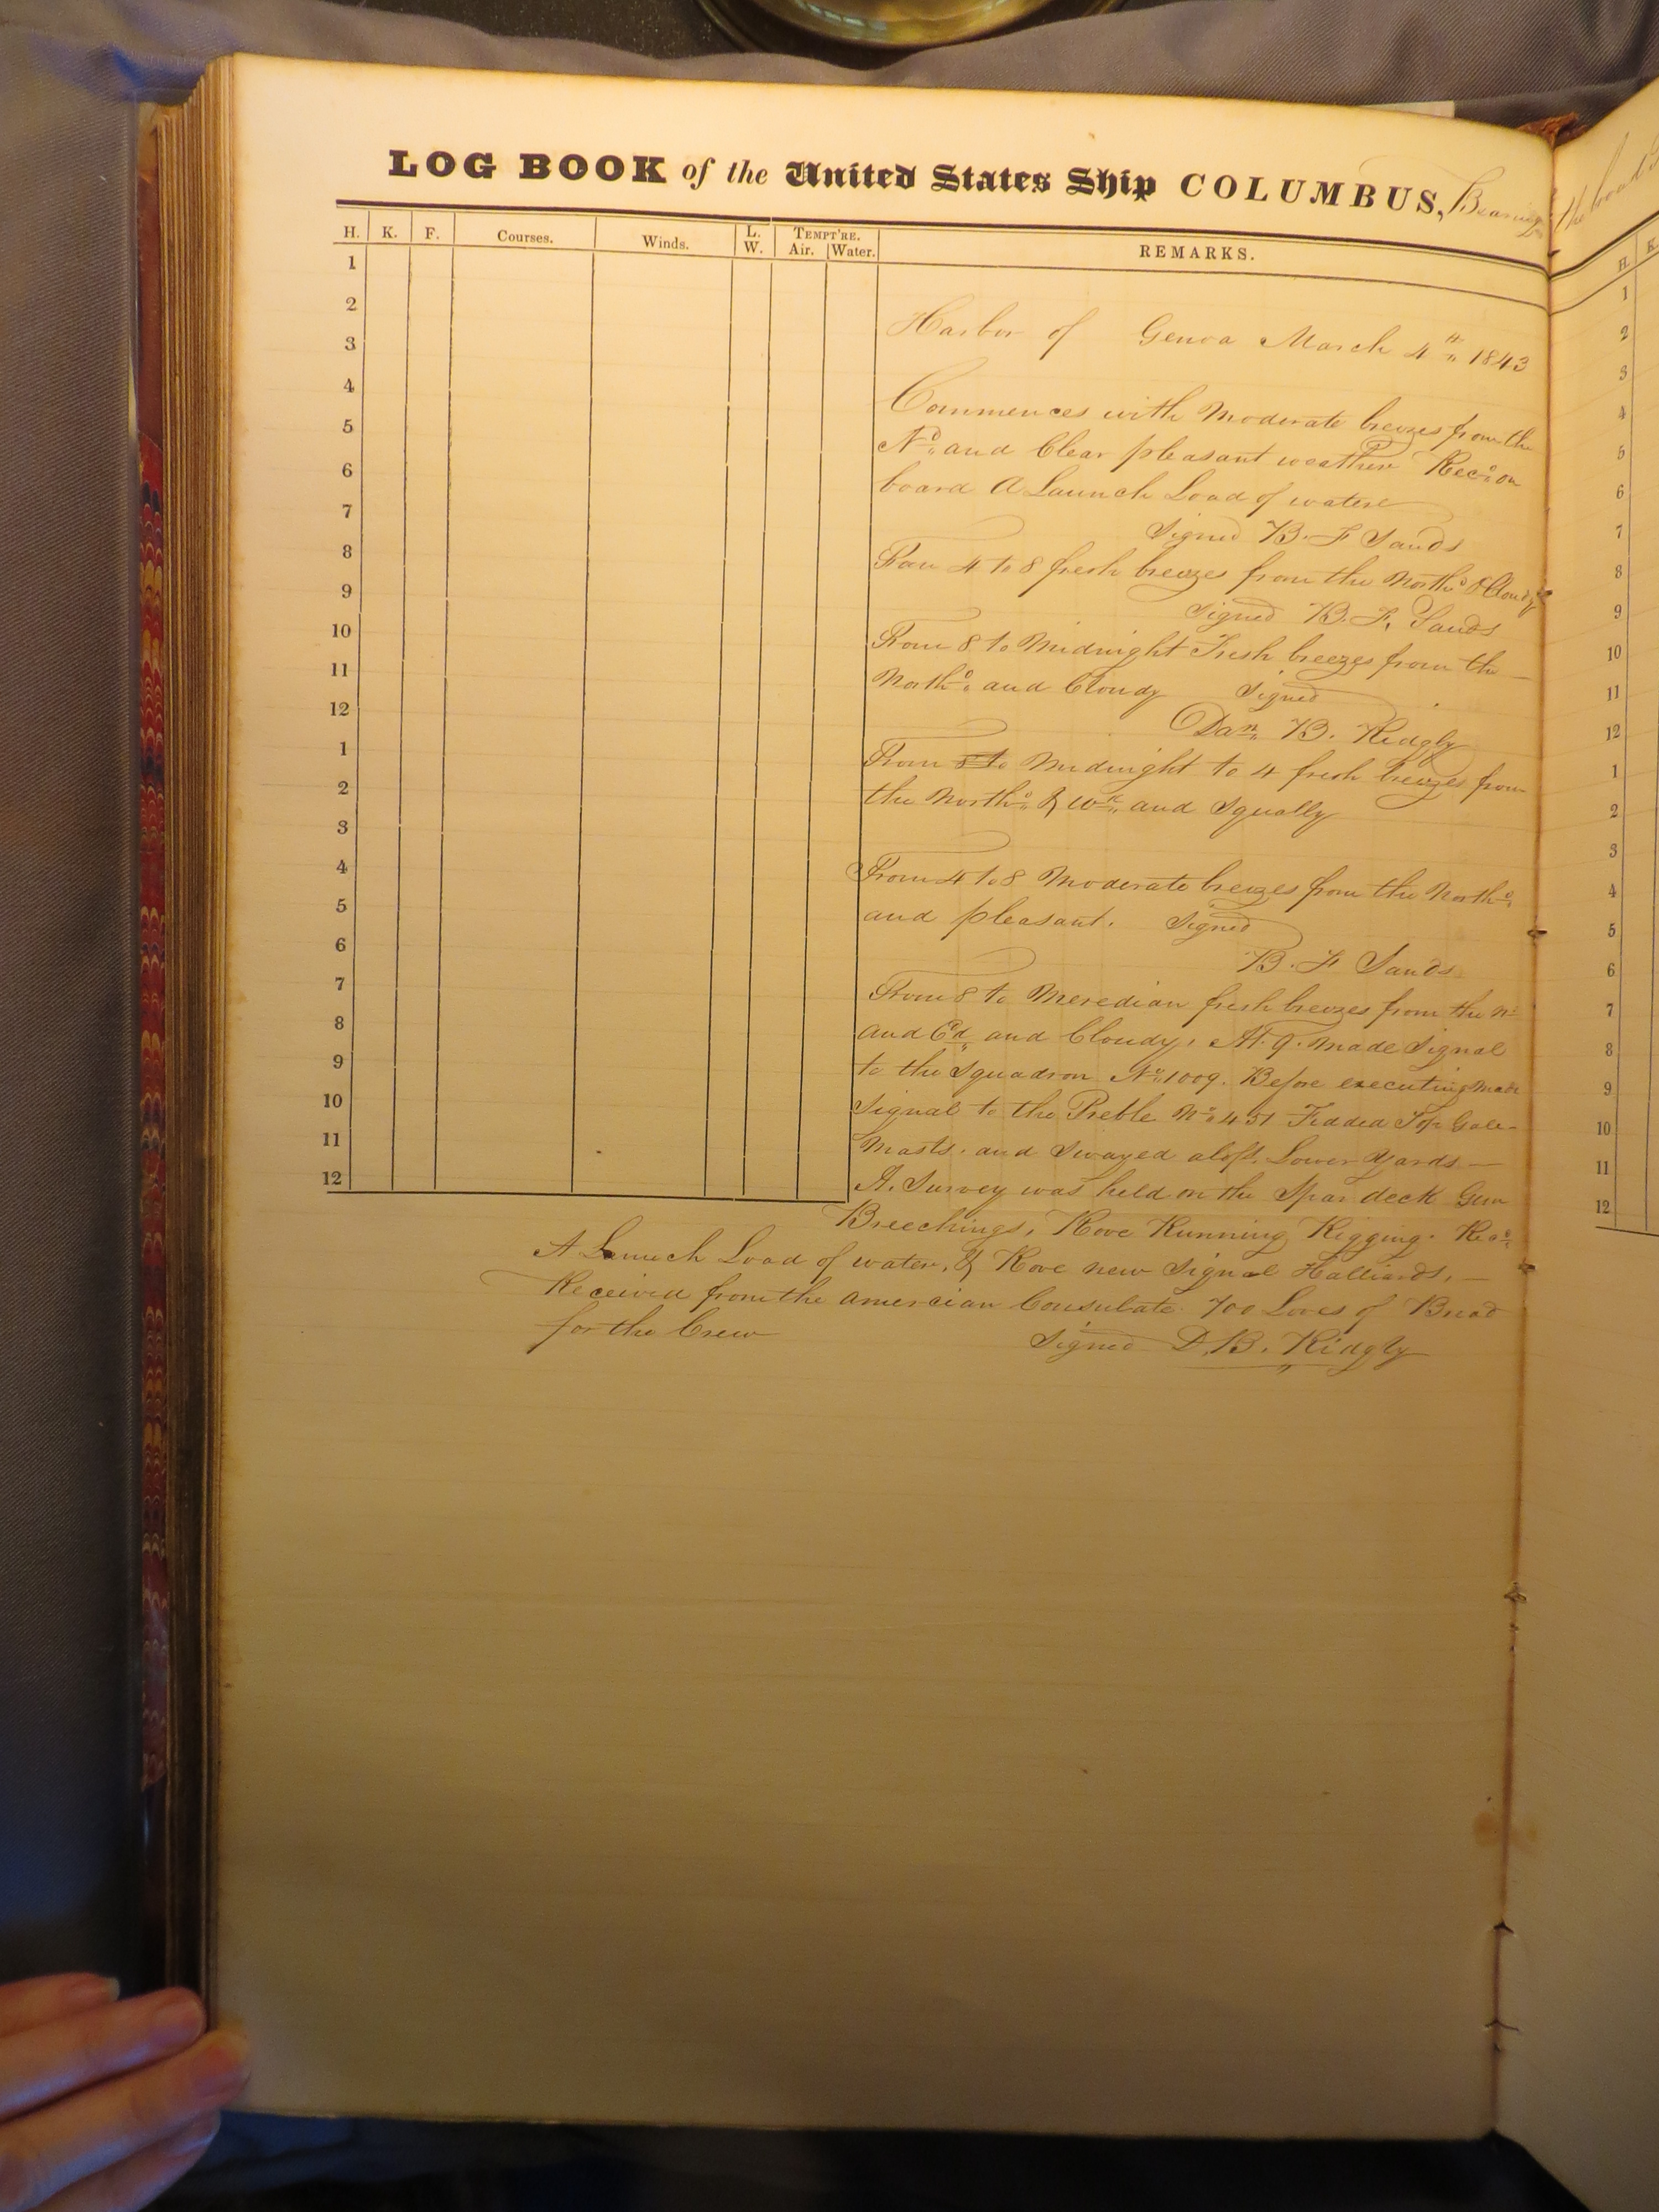 LOG BOOK of the United States Ship COLUMBUS, Bearing
H. K. F. Courses. Winds. L. W. TEMPT'RE. Air. Water. REMARKS.
1
2
3
4
5
6
7
8
9
10
11
12
1
2
3
4
5
6
7
8
9
10
11
12
Harbor of Genoa March 4th 1843
Commences with Moderate breezes from the
Nd and Clear pleasant weather Recd on
board A Launch Load of water
Signed B. F Sands
From 4 to 8 fresh breezes from the Northd & Cloudy
Signed B. F. Sands
From 8 to Midnight Fresh breezes from the
Northd and Cloudy Signed
Dan B. Ridgly
From 8 to Midnight to 4 fresh breezes from
the Northd & Wd and Squally
From 4 to 8 Moderate breezes from the Northd
and pleasant. Signed
B. F Sands
From 8 to Meredian fresh breezes from the N
and Ed and Cloudy, At 9. Made Signal
to the Squadron No 1009. Before executing Made
Signal to the Preble No 451 Fidded Top Gale-
Masts. and Swayed aloft Lower Yards —
A. Survey was held on the Spar deck Gun
Breechings, Rove Running Rigging. Recd
A Launch Load of water, & Rove new Signal Halliards, —
Received from the amercian Consulate 700 Loves of Bread
for the Crew Signed D. B. Ridgly
The
H. K.
1
2
3
4
5
6
7
8
9
10
11
12
1
2
3
4
5
6
7
8
9
10
11
12